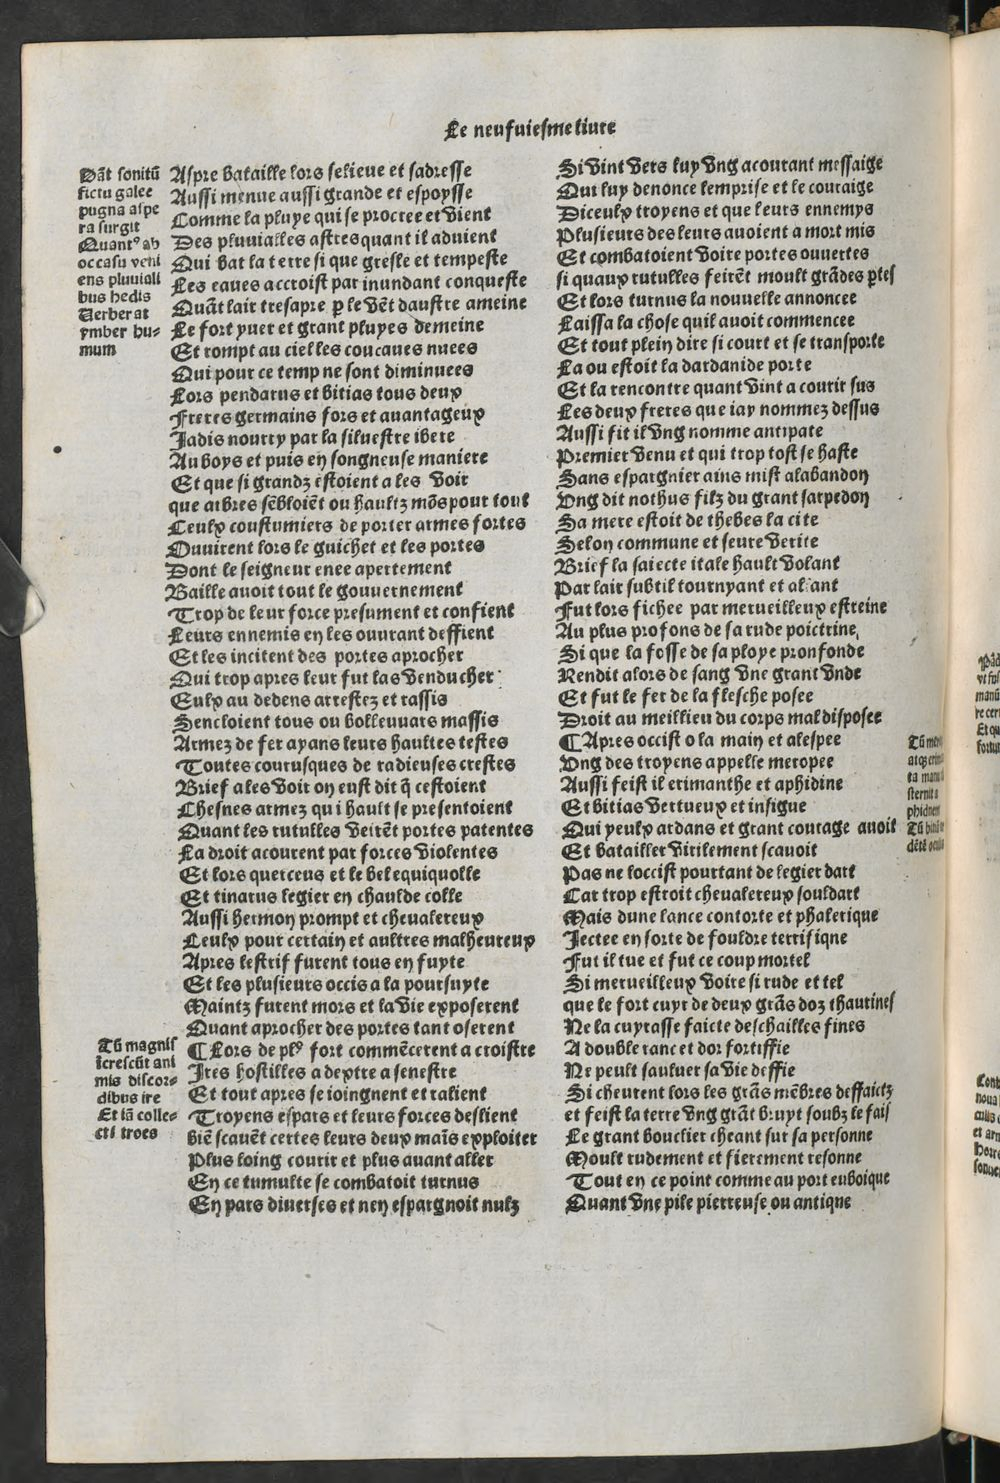 Le neufuiesme liure
Dāt sonitū
fictu galee
pugna aspe
ra surgit
Quantꝰ ab
occasu veni
ens pluuiali
bus hedis
Verberat
ymber hu-
mum
Aspre bataille lors selieue et sadresse
Aussi menue aussi grande et espoysse
Comme la pluye qui se procree et vient
Des pluuialles astres quant il aduient
Qui bat la terre si que gresle et tempeste
Les eaues accroist par inundant conqueste
Quāt lair tresapre p le vēt daustre ameine
Le fort yuer et grant pluyes demeine
Et rompt au ciel les coucaues nuees
Qui pour ce temp ne sont diminuees
Lors pendarus et bitias tous deux
Freres germains fors et auantageux
Jadis nourry par la siluestre ibere
Au boys et puis en songneuse maniere
Et que si grandz estoient a les voir
que arbres sēbloiēt ou haultz mōs pour tout
Ceulx coustumiers de porter armes fortes
Ouurirent lors le guichet et les portes
Dont le seigneur enee apertement
Baille auoit tout le gouuernement
Trop de leur force presument et confient
Leurs ennemis en les ouurant deffient
Et les incitent des portes aprocher
Qui trop apres leur fut las vendu cher
Eulx au dedens arrestez et rassis
Sencloient tous ou bolleuuars massis
Armez de fer ayans leurs haultes testes
Toutes courusques de radieuses crestes
Brief a les voir on eust dit q̄ cestoient
Chesnes armez qui hault se presentoient
Quant les rutulles veirēt portes patentes
La droit acourent par forces violentes
Et lors querceus et le bel equiquolle
Et tinarus legier en chaulde colle
Aussi hermon prompt et cheualereux
Ceulx pour certain et aultres malheureux
Apres lestrif furent tous en fuyte
Et les plusieurs occis a la poursuyte
Maintz furent mors et la vie exposerent
Quant aprocher des portes tant oserent
Tū magnis
īcrescūt ani
mis discor-
dibus ire
Et iā colle-
cti troes
¶ Lors de plꝰ fort commēcerent a croistre
Jres hostilles a dextre a senestre
Et tout apres se ioingnent et ralient
Troyens espars et leurs forces deslient
biē scauēt certes leurs deux maīs exploiter
Plus loing courir et plus auant aller
En ce tumulte se combatoit turnus
En pars diuerses et nen espargnoit nulz
Si vint vers luy vng acourant messaige
Qui luy denonce lemprise et le couraige
Diceulx troyens et que leurs ennemys
Plusieurs des leurs auoient a mort mis
Et combatoient voire portes ouuertes
si quaux rutulles feirēt moult grādes ptes
Et lors turnus la nouuelle annoncee
Laissa la chose quil auoit commencee
Et tout plein dire si court et se transporte
La ou estoit la dardanide porte
Et la rencontre quant vint a courir sus
Les deux freres que iay nommez dessus
Aussi fit il vng nomme antipate
Premier venu et qui trop tost se haste
Sans espargnier ains mist alabandon
Vng dit nothus filz du grant sarpedon
Sa mere estoit de thebes la cite
Selon commune et seure verite
Brief la saiecte itale hault volant
Par lair subtil tournyant et alant
Fut lors fichee par merueilleux estreine
Au plus profons de sa rude poictrine
Si que la fosse de sa ploye pronfonde
Rendit alors de sang vne grant vnde
Et fut le fer de la flesche posee
Droit au meillieu du corps mal disposee
¶ Apres occist o la main et alespee
Vng des troyens appelle meropee
Aussi feist il erimanthe et aphidine
Et bitias vertueux et insigue
Qui yeulx ardans et grant courage auoit
Et batailler virilement scauoit
Pas ne loccist pourtant de legier dart
Car trop estroit cheualereux souldart
Mais dune lance contorte et phalerique
Jectee en sorte de fouldre terrifique
Fut il tue et fut ce coup mortel
Si merueilleux voire si rude et tel
que le fort cuyr de deux grās doz thautines
Ne la cuyrasse faicte deschailles fines
A double ranc et dor fortiffie
Ne peult sauluer sa vie deffie
Si cheurent lors les grās mēbres deffaictz
et feist la terre vng grāt bruyt soubz le fais
Le grant bouclier cheant sur sa personne
Moult rudement et fierement resonne
Tout en ce point comme au port euboique
Quant vne pile pierreuse ou antique